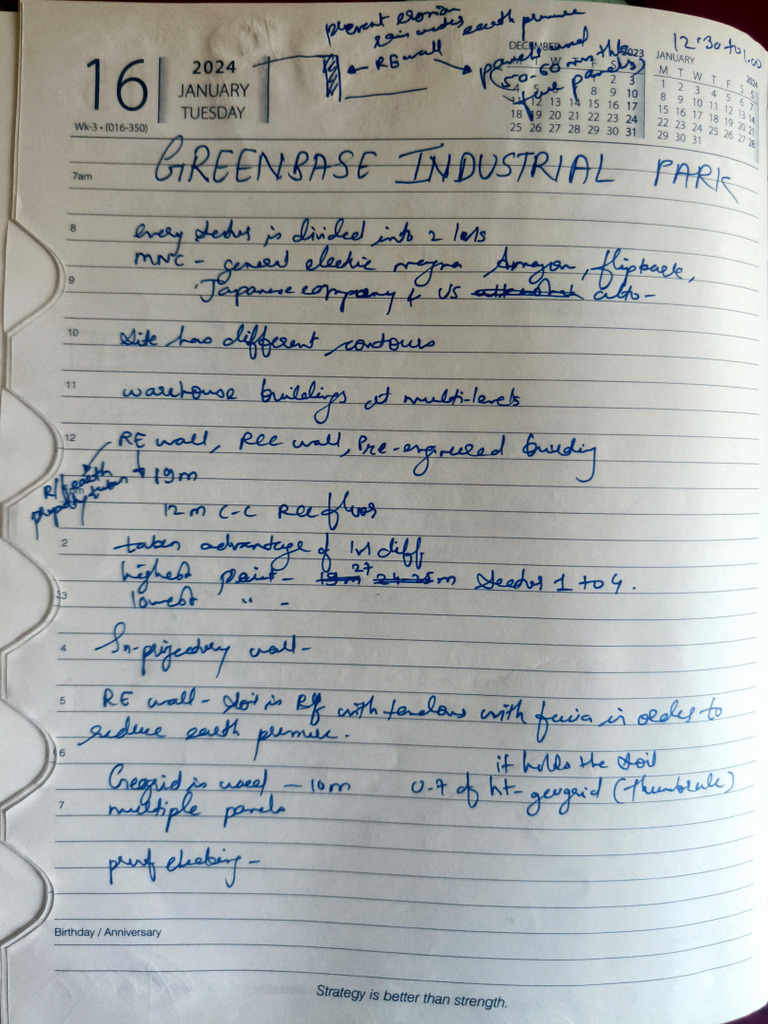 prevent erosion
rain water earth pressure
RE wall
panels and
(50-60 mm thk
panels)
12:30 to 1:00
16
2024
JANUARY
TUESDAY
Wk-3 • (016-350)
DECEMBER 2023
W F S
2 3
4 5 8 9 10
11 12 13 14 15 16 17
18 19 20 21 22 23 24
25 26 27 28 29 30 31
JANUARY 2024
M T W T F S S
1 2 3 4 5 6 7
8 9 10 11 12 13 14
15 16 17 18 19 20 21
22 23 24 25 26 27 28
29 30 31
GREENBASE INDUSTRIAL PARK
7am
8 every sector is divided into 2 lots
MNC - general electric magna Amazon, flipkart,
9 Japanese company & US also-
10 site has different contours
11 warehouse buildings at multi-levels
12 RE wall, RCC wall, Pre-engineered building
R/f earth
19m
12m C-C RCC floor
2 takes advantage of lvl diff
highest point - 19m 27 24-25 m 1 to 4.
3 lowest " -
4 wall-
5 RE wall - soil is R/f with tendons with fascia in order to
reduce earth pressure.
6 it holds the soil
Geogrid is used - 10m 0.7 of ht- geogrid (thumbrule)
7 multiple panels
proof checking -
Birthday / Anniversary
Strategy is better than strength.